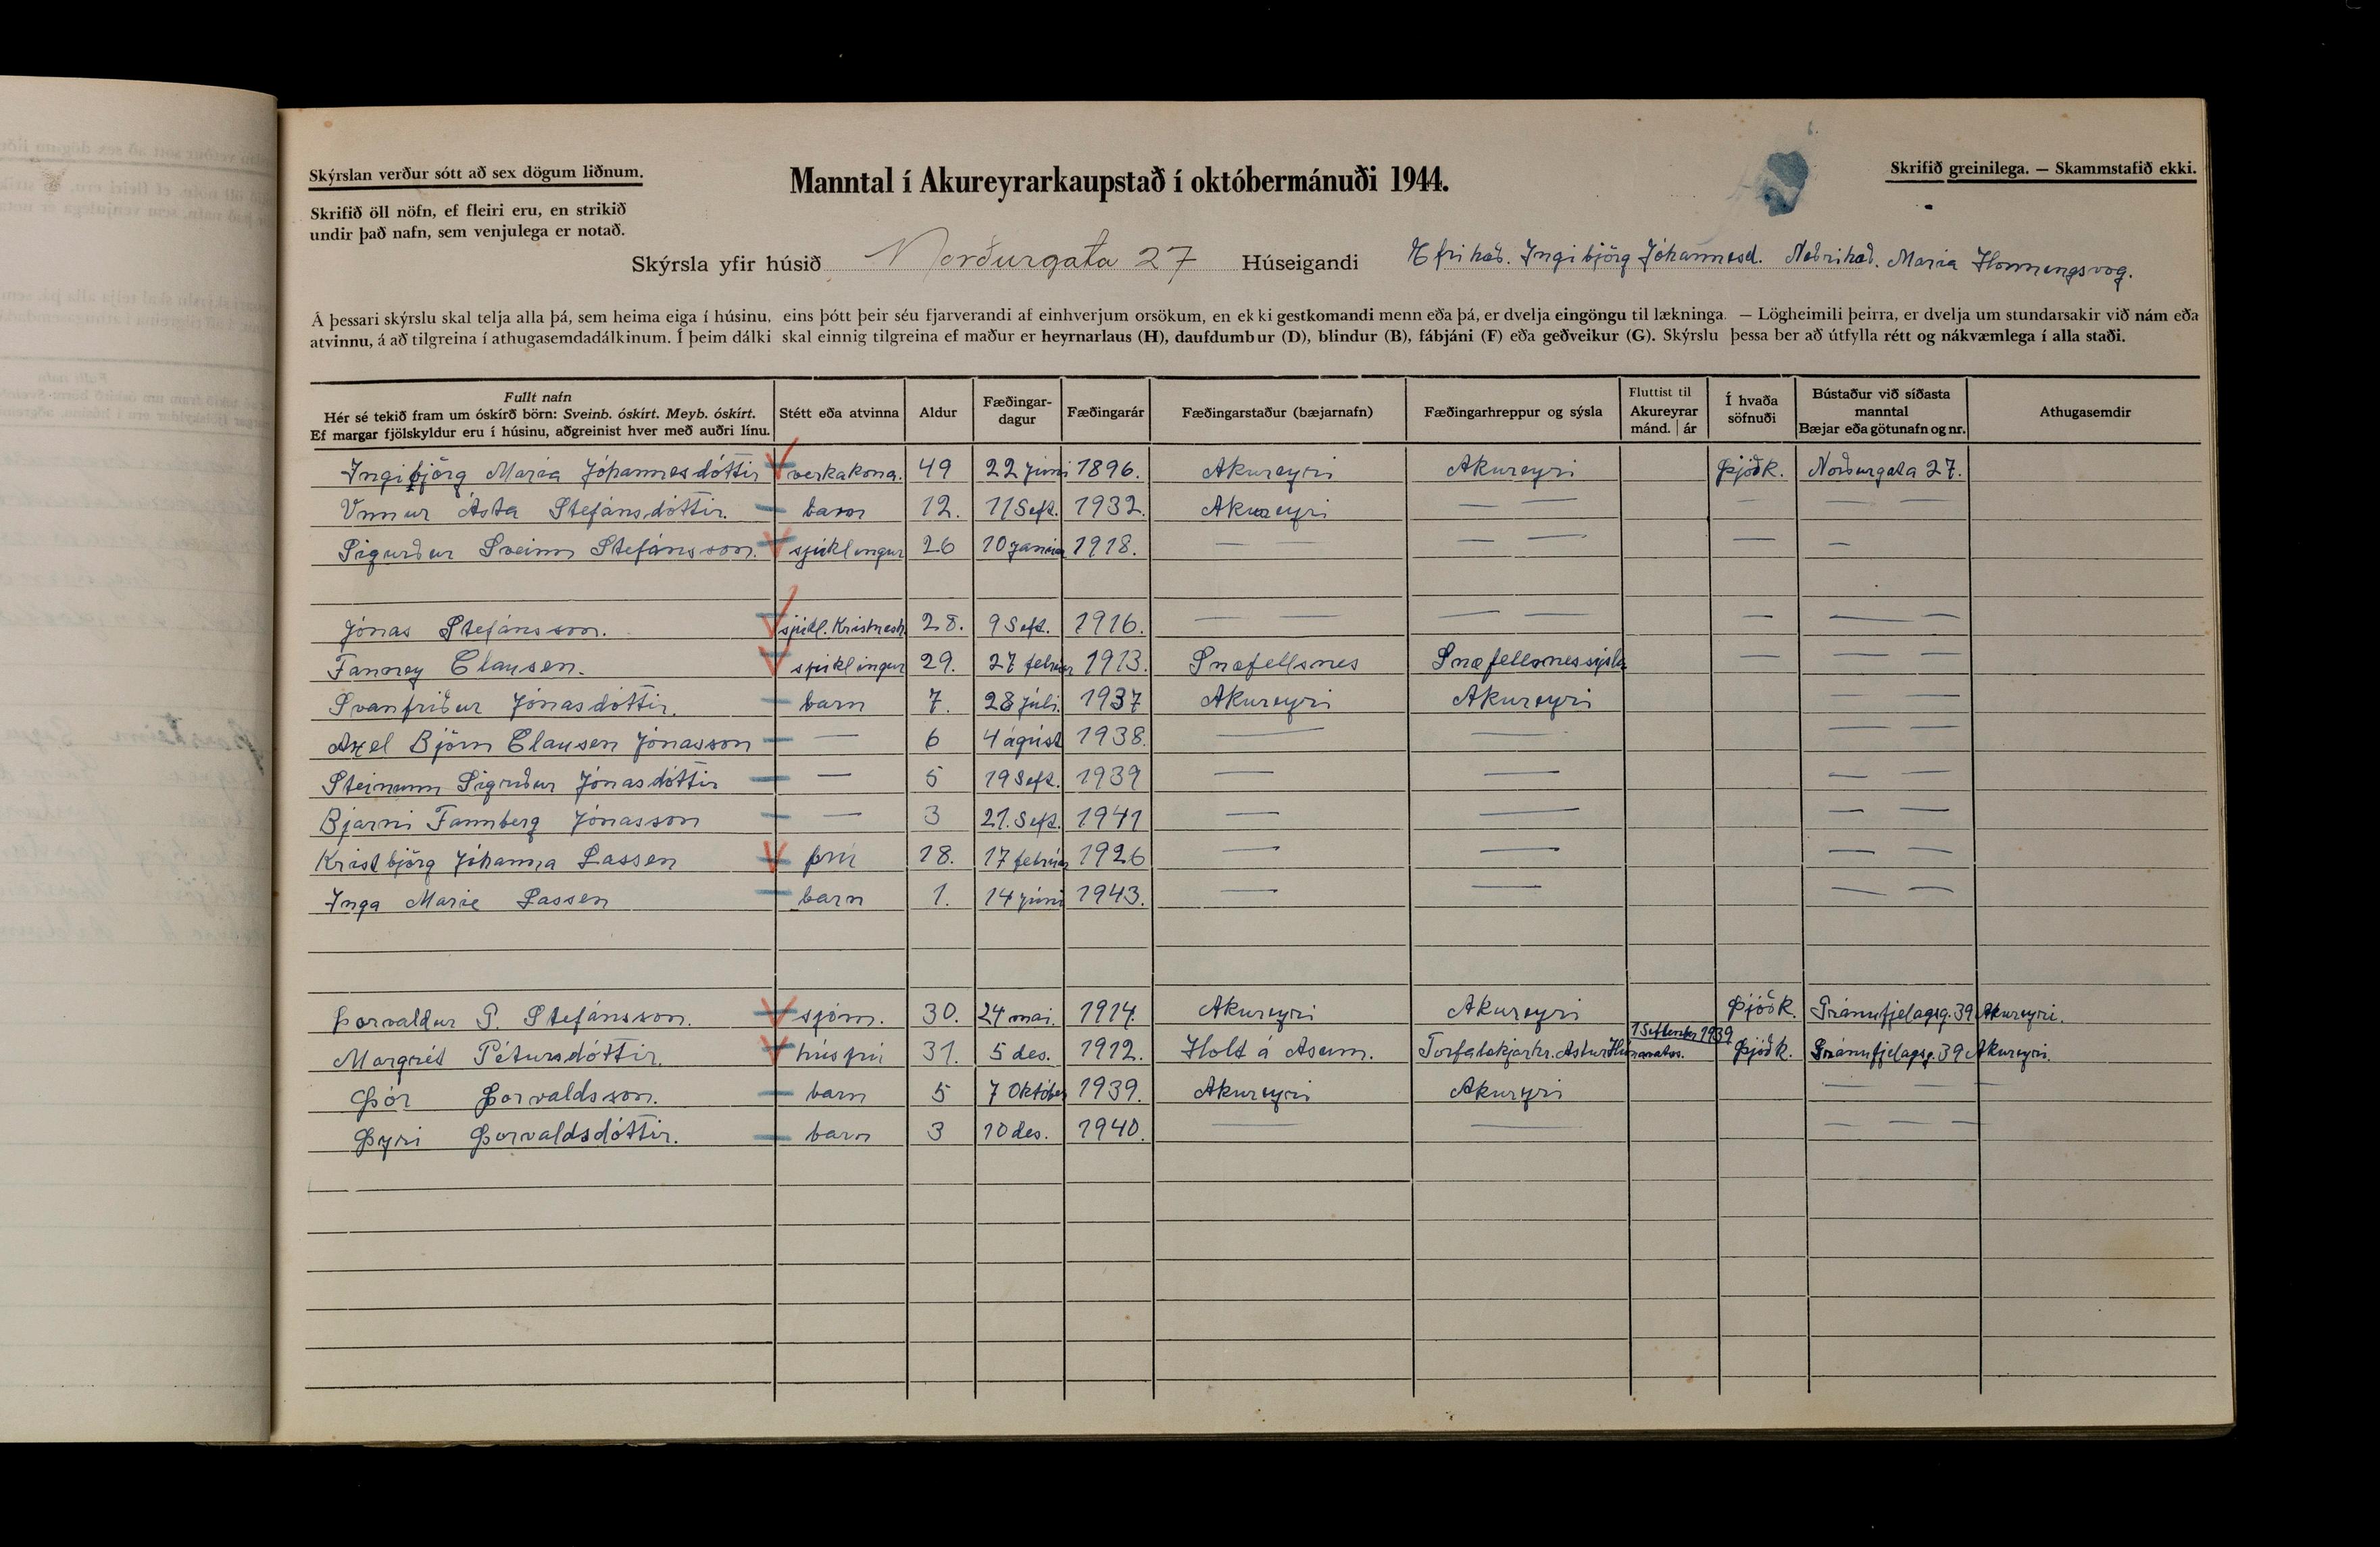 Skýrslan verður sótt að sex dögum liðnum.
Manntal í Akureyrarkaupstað í októbermánuði 1944.
Skrifið greinilega. — Skammstafið ekki.
Skrifið öll nöfn, ef fleiri eru, en strikið
undir það nafn, sem venjulega er notað.
Skýrsla yfir húsið Norðurgata 27 Húseigandi Efri hæð. Ingibjörg Jóhannesd. Neðri hæð. María Honnengsvog.
Á þessari skýrslu skal telja alla þá, sem heima eiga í húsinu, eins þótt þeir séu fjarverandi af einhverjum orsökum, en ekki gestkomandi menn eða þá, er dvelja eingöngu til lækninga. — Lögheimili þeirra, er dvelja um stundarsakir við nám eða
atvinnu, á að tilgreina í athugasemdadálkinum. Í þeim dálki skal einnig tilgreina ef maður er heyrnarlaus (H), daufdumbur (D), blindur (B), fábjáni (F) eða geðveikur (G). Skýrslu þessa ber að útfylla rétt og nákvæmlega í alla staði.
Fullt nafn
Hér sé tekið fram um óskírð börn: Sveinb. óskírt. Meyb. óskírt.
Ef margar fjölskyldur eru í húsinu, aðgreinist hver með auðri línu.
Stétt eða atvinna
Aldur
Fæðingar-
dagur
Fæðingarár
Fæðingarstaður (bæjarnafn)
Fæðingarhreppur og sýsla
Fluttist til
Akureyrar
mánd. | ár
Í hvaða
söfnuði
Bústaður við síðasta
manntal
Bæjar eða götunafn og nr.
Athugasemdir
Ingibjörg María Jóhannesdóttir verkakona. 49 22 júni 1896. Akureyri Akureyri Þjóðk. Norðurgata 27.
Unnur Ásta Stefánsdóttir. barn 12. 11 Sept. 1932. Akureyri — — — — —
Sigurður Sveinn Stefánsson. sjúklingur 26 10 janúar 1918. — — — — — —
Jónas Stefánsson. sjúkl. Kristnesh. 28. 9 Sept. 1916. — — — — — — —
Fanney Clausen. sjúklingur 29. 27 febrúar 1913. Snæfellsnes Snæfellsnessýsla — — —
Svanfríður Jónasdóttir. barn 7. 28 júli. 1937 Akureyri Akureyri — —
Axel Björn Clausen Jónasson — 6 4 ágúst 1938. — — — —
Steinunn Sigríður Jónasdóttir — 5 19 Sept. 1939 — — — —
Bjarni Fannberg Jónasson — 3 21. Sept. 1941 — — — —
Kristbjörg Jóhanna Lassen frú 18. 17 febrúar 1926 — — — —
Inga Marie Lassen barn 1. 14 júni 1943. — — — —
Þorvaldur P. Stefánsson. sjóm. 30. 24 mai. 1914. Akureyri Akureyri Þjóðk. Gránufjelagsg. 39 Akureyri.
Margrét Pétursdóttir. húsfrú 31. 5 des. 1912. Holt á Ásum. Torfalækjarhr. Astur Húnavatns. 1 September 1939 Þjóðk. Gránufjelagsg. 39 Akureyri.
Þór Þorvaldsson. barn 5 7 Október 1939. Akureyri Akureyri — — —
Þyri Þorvaldsdóttir. barn 3 10 des. 1940. — — — — —